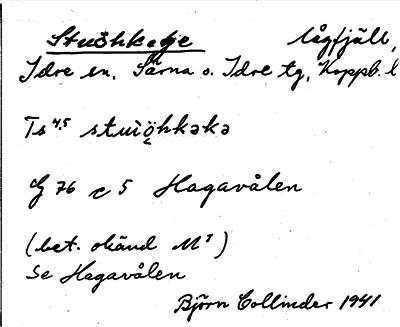 Stuöhkeje lågfjäll,
Idre sn. Särna o. Idre tg, Koppb. l
Ts 4,5 stuiöhkəkə
G 76 c 5 Hagavålen
(bet. okänd M1)
Se Hagavålen
Björn Collinder 1941